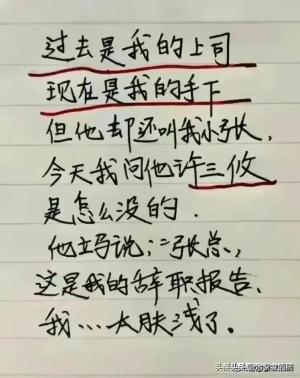 过去是我的上司
现在是我的手下
但他却还叫我小张,
今天我问他许三攸
是怎么没的.
他立马说:"张总,
这是我的辞职报告.
我…太肤浅了.